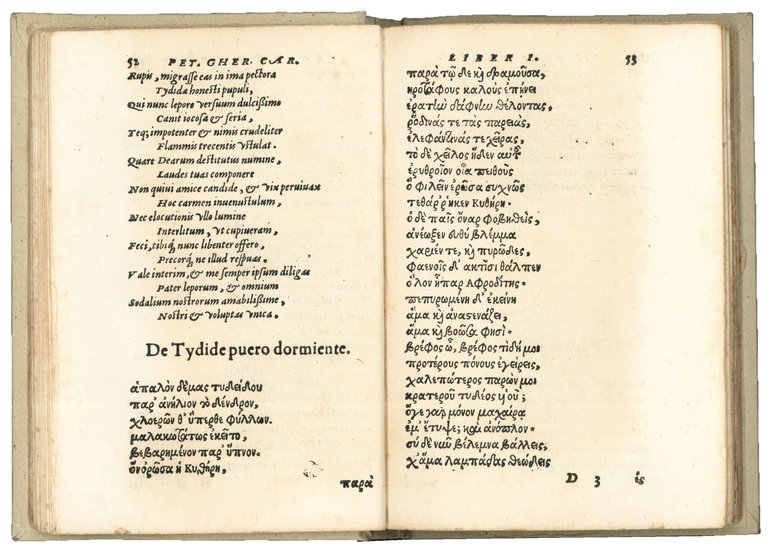 52 PET. GHER. CAR.
Rupis, migrasse eas in ima pectora
Tydidæ honesti pupuli,
Qui nunc lepore versuum dulcissimo
Canit iocosa & seria,
Teq; impotenter & nimis crudeliter
Flammis trecentis vstulat.
Quare Dearum destitutus numine,
Laudes tuas componere
Non quiui amice candide, & vix peruicax
Hoc carmen inuenustulum,
Nec elocutionis vllo lumine
Interlitum, vt cupiueram,
Feci, tibiq́; nunc libenter offero,
Precorq́; ne illud respuas.
Vale interim, & me semper ipsum diligas
Pater leporum, & omnium
Sodalium nostrorum amabilissime,
Nostri & voluptas vnica.
De Tydide puero dormiente.
ἁπαλὸν δέμας τυδείδου
παρ' ἀνήλιον τὸ δένδρον,
χλοερῶν θ' ὕπερθε φύλλων.
μαλακωτάτως ἔκειτο,
βεβαρημένον παρ' ὕπνον.
ὃν ὁρῶσα ἡ Κυθήρη,
παρὰ
LIBER I. 53
παρὰ τῷ δὲ καὶ δραμοῦσα,
κροτάφους καλοὺς ἐπήνει
ἐρατὴν δάφνην θέλοντας,
ῥοδινάς τε τὰς παρειὰς,
ἐλεφαντίνας τε χεῖρας.
τὸ δὲ χεῖλος ἥδεν αὐτῷ
ἐρυθροῖον οἷα πειθοῦς
ὃ φιλεῖν ἐρῶσα συχνῶς
τεθάῤῥηκεν Κυθήρη·
ὁ δὲ παῖς ὄναρ φοβηθεὶς,
ἀνέωξεν εὐθὺ βλέμμα
χαρίεν τε, καὶ πυρῶδες,
φαενοῖς δ' ἀκτῖσι θάλπεν
ὅλον ἧπαρ Αφροδίτης·
πεπυρωμένη δ' ἐκείνη
ἅμα καὶ ἀναστενάζει,
ἅμα καὶ βοῶσα φησί·
βρέφος ὦ, βρέφος τί δή μοι
προτέρους πόνους ἐγείρεις,
χαλεπώτερος παρών μοι
κρατεροῦ τυδέος υἱοῦ;
ὅγε γὰρ μόνον μαχαίρᾳ
ἔμ' ἔτυψε; καὶ ἄνοπλον·
σὺ δὲ ναῦ βέλεμνα βάλλεις,
χ' ἅμα λαμπάδας θεώδεις
D 3 εἰς